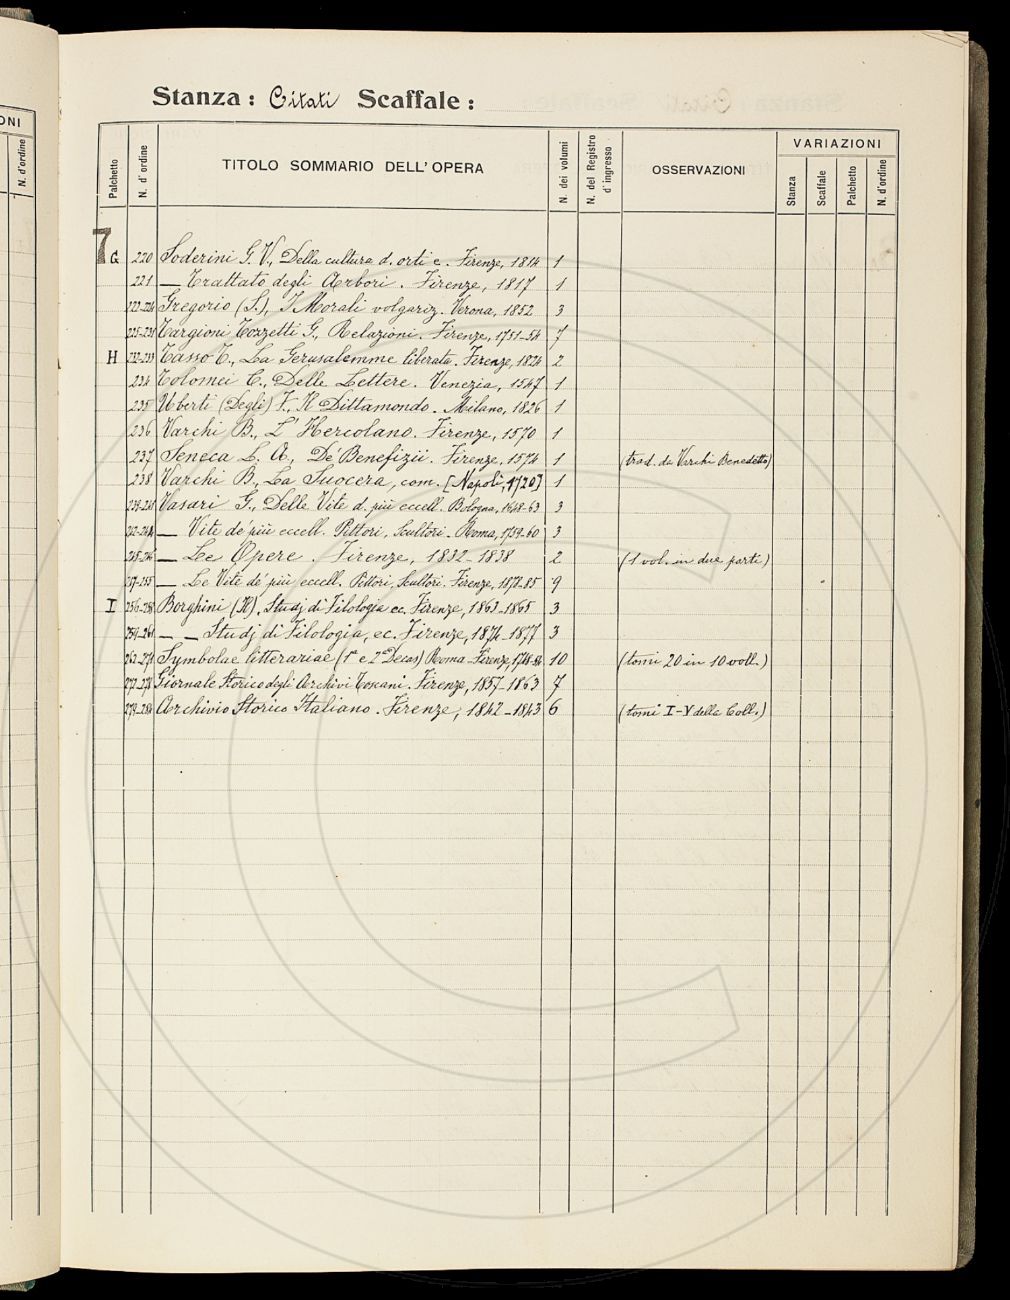 ONI
N. d'ordine
Stanza: Citati Scaffale:
Palchetto
N. d'ordine
TITOLO SOMMARIO DELL'OPERA
N. dei volumi
N. del Registro d'ingresso
OSSERVAZIONI
VARIAZIONI
Stanza
Scaffale
Palchetto
N. d'ordine
7
G 220 Soderini G. V., Della cultura d. orti e. Firenze, 1814 1
221 — Trattato degli Arbori. Firenze, 1817 1
222-224 Gregorio (S.), I Morali volgariz. Verona, 1852 3
225-231 Targioni Tozzetti G., Relazioni. Firenze, 1751-54 7
H 232-233 Tasso T., La Gerusalemme liberata. Firenze, 1824 2
234 Tolomei C., Delle Lettere. Venezia, 1547 1
235 Uberti (Degli) F., Il Dittamondo. Milano, 1826 1
236 Varchi B., L'Hercolano. Firenze, 1570 1
237 Seneca L. A., De' Benefizii. Firenze, 1574 1 (trad. da Varchi Benedetto)
238 Varchi B., La Suocera, com. [Napoli, 1720] 1
239-241 Vasari G., Delle Vite d. più eccell. Bologna, 1648-63 3
242-244 — Vite de' più eccell. Pittori, Scultori. Roma, 1759-60 3
245-246 — Le Opere. Firenze, 1832-1838 2 (1 vol. in due parti)
247-255 — Le Vite de' più eccell. Pittori, Scultori. Firenze, 1878-85 9
I 256-258 Borghini (R), Studj di Filologia ec. Firenze, 1863-1865 3
259-261 — — Studj di Filologia, ec. Firenze, 1874-1877 3
262-271 Symbolae litterariae (1ª e 2ª Decas) Roma-Firenze, 1748-54 10 (tomi 20 in 10 voll.)
272-278 Giornale Storico degli Archivi Toscani. Firenze, 1857-1863 7
279-284 Archivio Storico Italiano. Firenze, 1842-1843 6 (tomi I-V della Coll.)